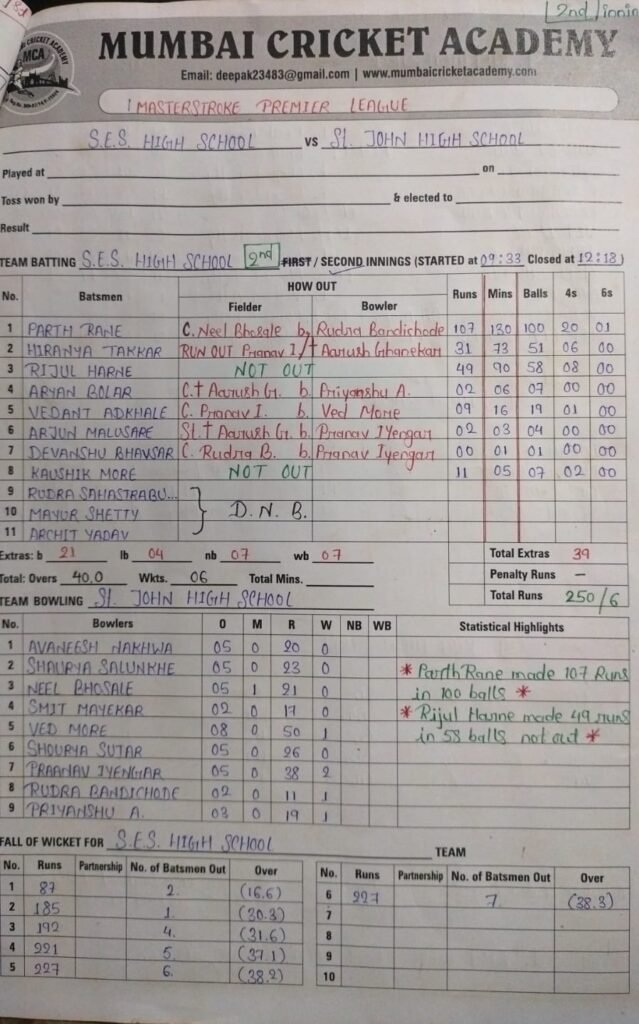 1st
2nd Innin
MCA
MUMBAI CRICKET ACADEMY
Email: deepak23483@gmail.com | www.mumbaicricketacademy.com
MASTERSTROKE PREMIER LEAGUE
S.E.S. HIGH SCHOOL vs St. JOHN HIGH SCHOOL
Played at on
Toss won by & elected to
Result
TEAM BATTING S.E.S. HIGH SCHOOL 2nd FIRST / SECOND INNINGS (STARTED at 09:33 Closed at 12:18)
No. Batsmen HOW OUT Runs Mins Balls 4s 6s
Fielder Bowler
1 PARTH RANE C. Neel Bhosale b. Rudra Bandichode 107 130 100 20 01
2 HIRANYA TAKKAR RUN OUT Pranav I/† Aarush Ghanekar 31 73 51 06 00
3 RIJUL HARNE NOT OUT 49 90 58 08 00
4 ARYAN BOLAR C.† Aarush G. b. Priyanshu A. 02 06 07 00 00
5 VEDANT ADKHALE C. Pranav I. b. Ved More 09 16 19 01 00
6 ARJUN MALUSARE St.† Aarush G. b. Pranav Iyengar 02 03 04 00 00
7 DEVANSHU BHAVSAR C. Rudra B. b. Pranav Iyengar 00 01 01 00 00
8 KAUSHIK MORE NOT OUT 11 05 07 02 00
9 RUDRA SAHASTRABU...
10 MAYUR SHETTY D.N.B.
11 ARCHIT YADAV
Extras: b 21 lb 04 nb 07 wb 07 Total Extras 39
Total: Overs 40.0 Wkts. 06 Total Mins. Penalty Runs —
TEAM BOWLING St. JOHN HIGH SCHOOL Total Runs 250/6
No. Bowlers O M R W NB WB Statistical Highlights
1 AVANEESH NAKHWA 05 0 20 0
2 SHAURYA SALUNKHE 05 0 23 0 * Parth Rane made 107 Runs
3 NEEL BHOSALE 05 1 21 0 in 100 balls *
4 SMIT MAYEKAR 02 0 17 0 * Rijul Harne made 49 runs
5 VED MORE 08 0 50 1 in 58 balls not out *
6 SHOURYA SUTAR 05 0 26 0
7 PRAANAV IYENGAR 05 0 38 2
8 RUDRA BANDICHODE 02 0 11 1
9 PRIYANSHU A. 03 0 19 1
FALL OF WICKET FOR S.E.S. HIGH SCHOOL TEAM
No. Runs Partnership No. of Batsmen Out Over No. Runs Partnership No. of Batsmen Out Over
1 87 2. (16.6) 6 227 7. (38.3)
2 185 1. (30.3) 7
3 192 4. (31.6) 8
4 221 5. (37.1) 9
5 227 6. (38.2) 10